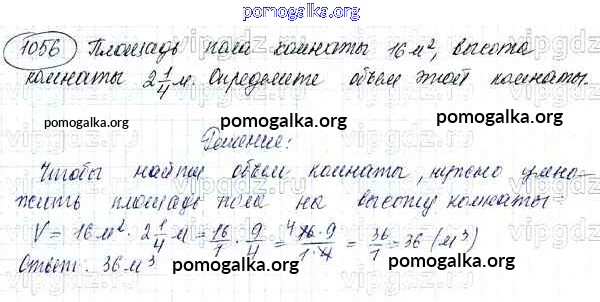 pomogalka.org
1056 Площадь пола комнаты 16 м², высота
комнаты 2 1/4 м. Определите объем этой комнаты.
pomogalka.org pomogalka.org
Решение:
Чтобы найти объем комнаты, нужно умно-
жить площадь пола на высоту комнаты
pomogalka.org pomogalka.org
V = 16 м² · 2 1/4 м = 16/1 · 9/4 = 4 16·9/1·4 = 36/1 = 36 (м³)
Ответ. 36 м³.
pomogalka.org pomogalka.org